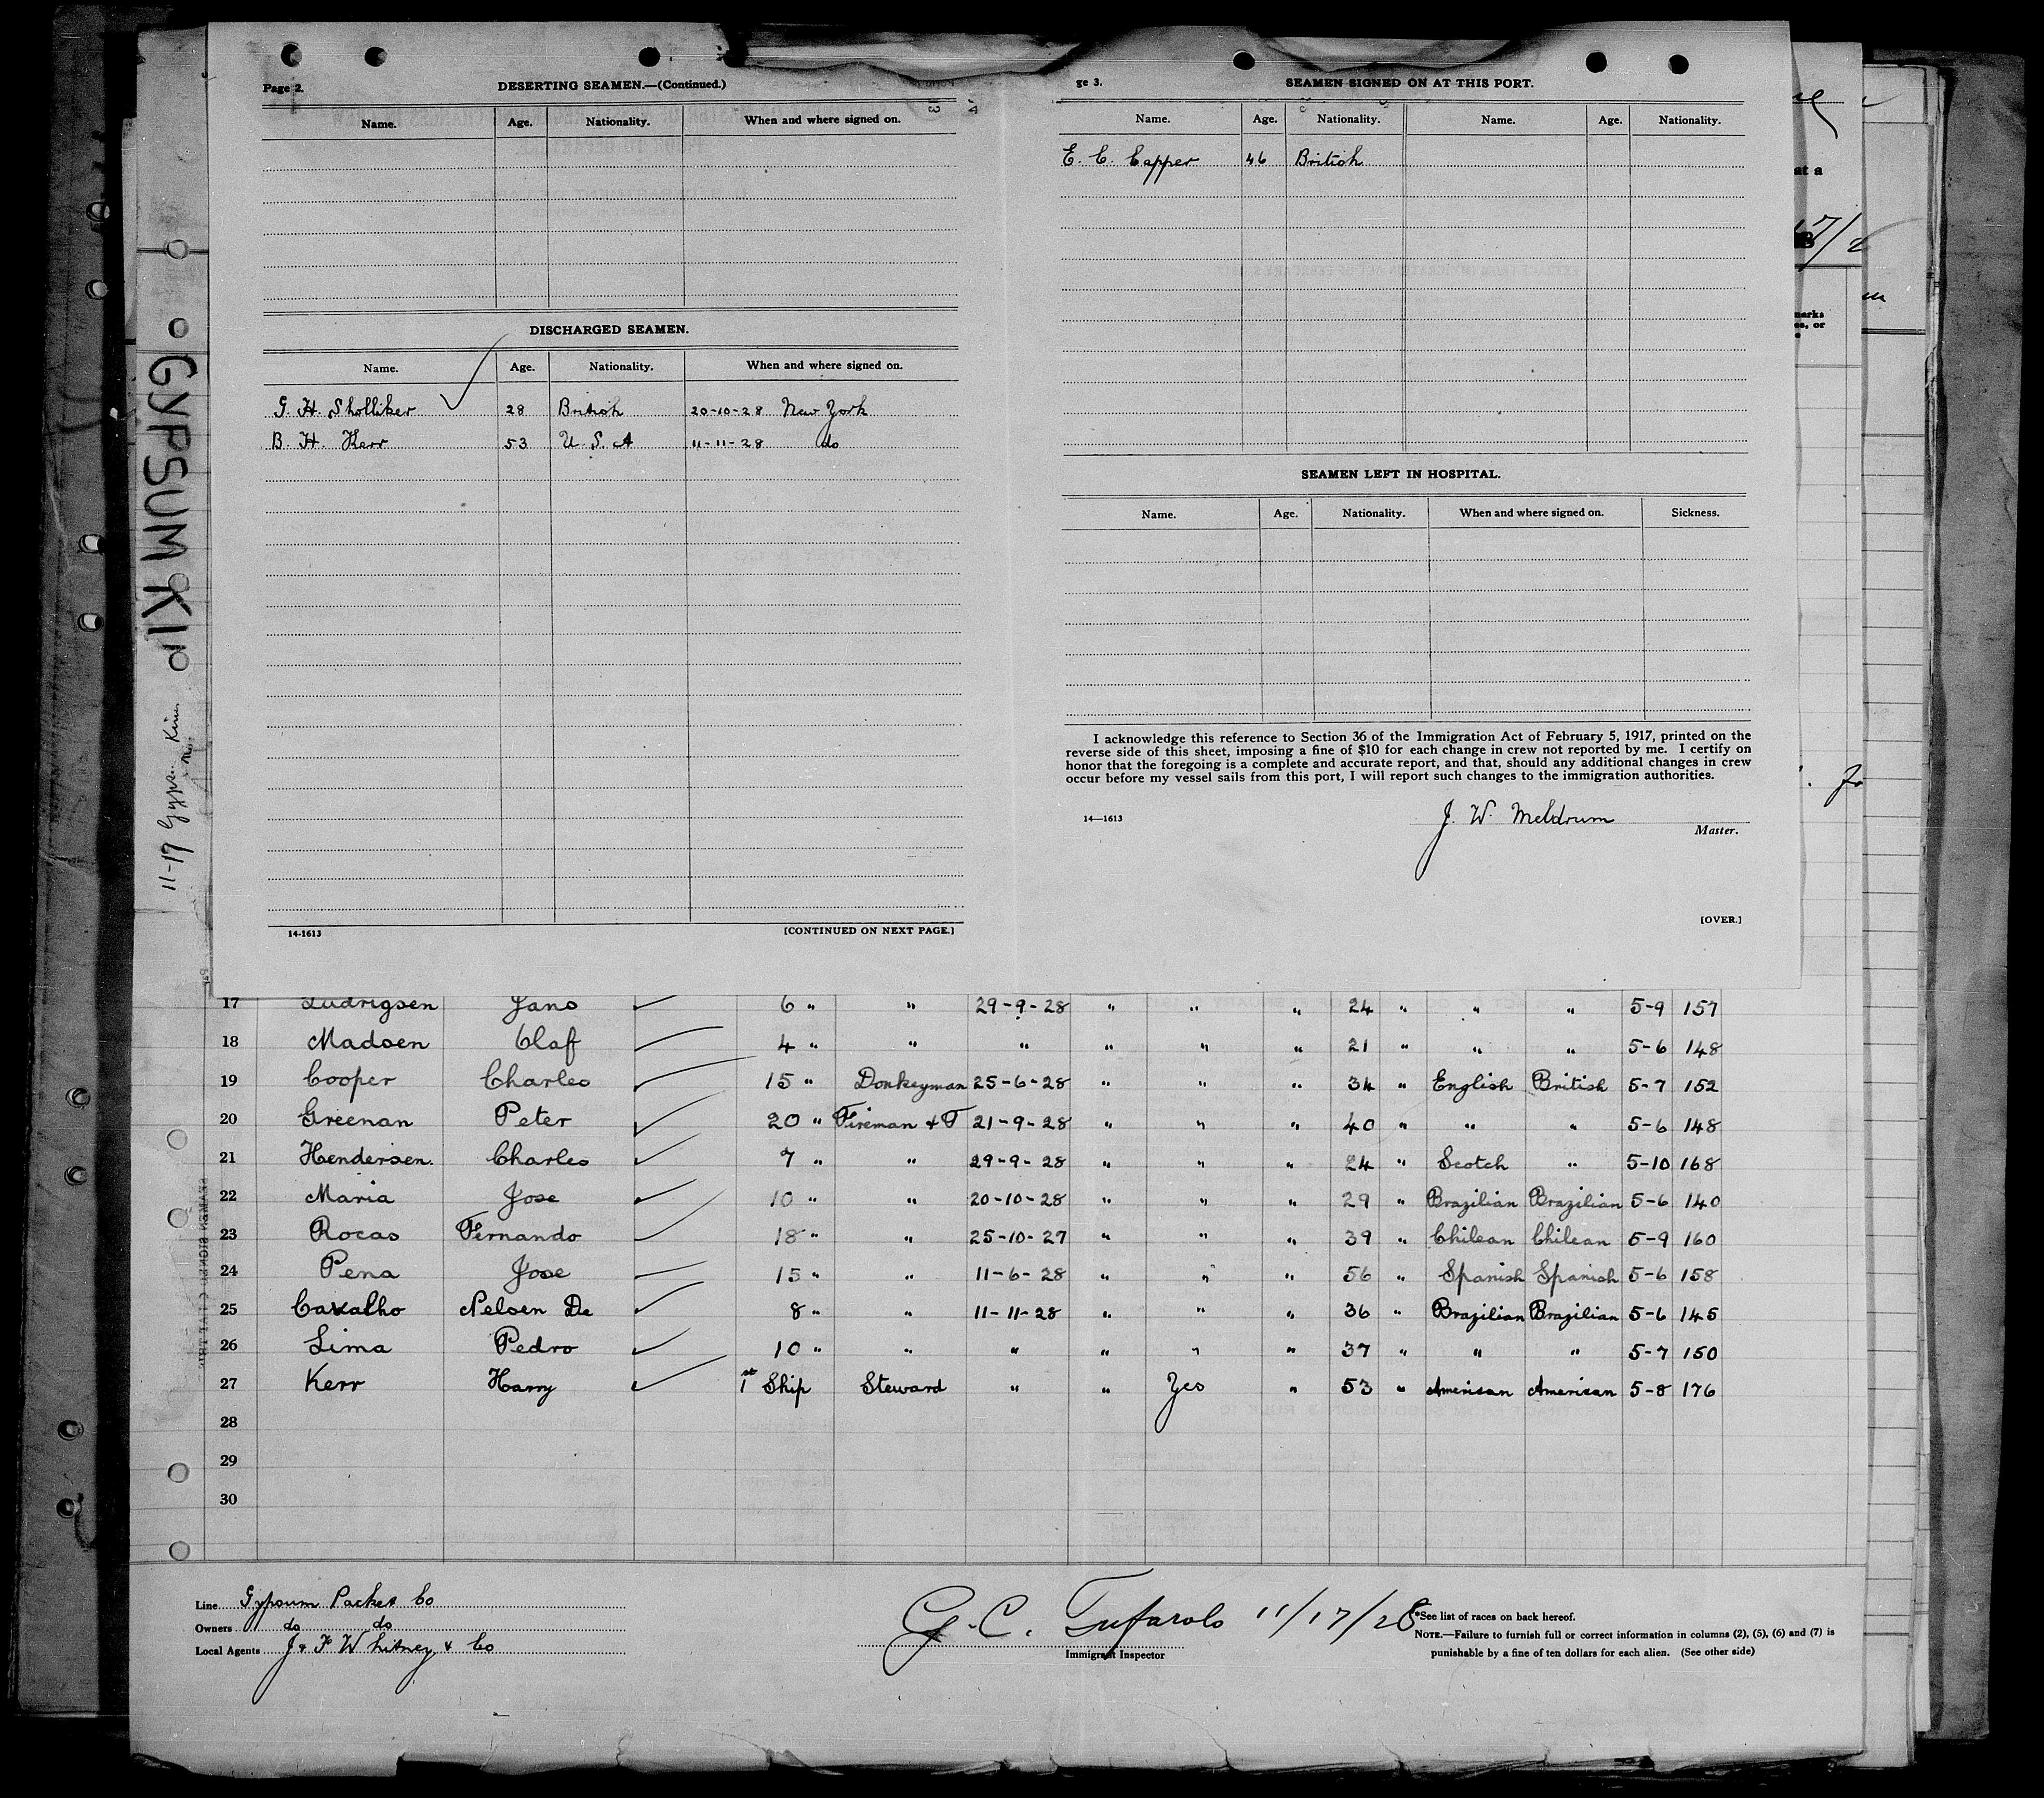 Page 2. DESERTING SEAMEN.—(Continued.)
Name. Age. Nationality. When and where signed on.
DISCHARGED SEAMEN.
Name. Age. Nationality. When and where signed on.
G. H. Sholliker 28 British 20-10-28 New York
B. H. Kerr 53 U. S. A 11-11-28 do
14-1613 [CONTINUED ON NEXT PAGE.]
ge 3. SEAMEN SIGNED ON AT THIS PORT.
Name. Age. Nationality. Name. Age. Nationality.
E. C. Capper 46 British
SEAMEN LEFT IN HOSPITAL.
Name. Age. Nationality. When and where signed on. Sickness.
I acknowledge this reference to Section 36 of the Immigration Act of February 5, 1917, printed on the
reverse side of this sheet, imposing a fine of $10 for each change in crew not reported by me. I certify on
honor that the foregoing is a complete and accurate report, and that, should any additional changes in crew
occur before my vessel sails from this port, I will report such changes to the immigration authorities.
J. W. Meldrum
14—1613 Master.
[OVER.]
GYPSUM KING
11-17
at a
marks
es, or
17 Ludrigsen Jans 6 " " 29-9-28 " " " 24 " " " 5-9 157
18 Madsen Olaf 4 " " " " " " 21 " " " 5-6 148
19 Cooper Charles 15 " Donkeyman 25-6-28 " " " 34 " English British 5-7 152
20 Greenan Peter 20 " Fireman & T 21-9-28 " " " 40 " " " 5-6 148
21 Hendersen. Charles 7 " " 29-9-28 " " " 24 " Scotch " 5-10 168
22 Maria Jose 10 " " 20-10-28 " " " 29 " Brazilian Brazilian 5-6 140
23 Rocas Fernando 18 " " 25-10-27 " " " 39 " Chilean Chilean 5-9 160
24 Pena Jose 15 " " 11-6-28 " " " 56 " Spanish Spanish 5-6 158
25 Cavalho Nelsen De 8 " " 11-11-28 " " " 36 " Brazilian Brazilian 5-6 145
26 Lima Pedro 10 " " " " " " 37 " " " 5-7 150
27 Kerr Harry 1st Ship Steward " " Yes " 53 " American American 5-8 176
28
29
30
Line Gypsum Packet Co
Owners do do
Local Agents J & F Whitney & Co
G. C. Tufarolo 11/17/28
Immigrant Inspector
*See list of races on back hereof.
NOTE.—Failure to furnish full or correct information in columns (2), (5), (6) and (7) is
punishable by a fine of ten dollars for each alien. (See other side)